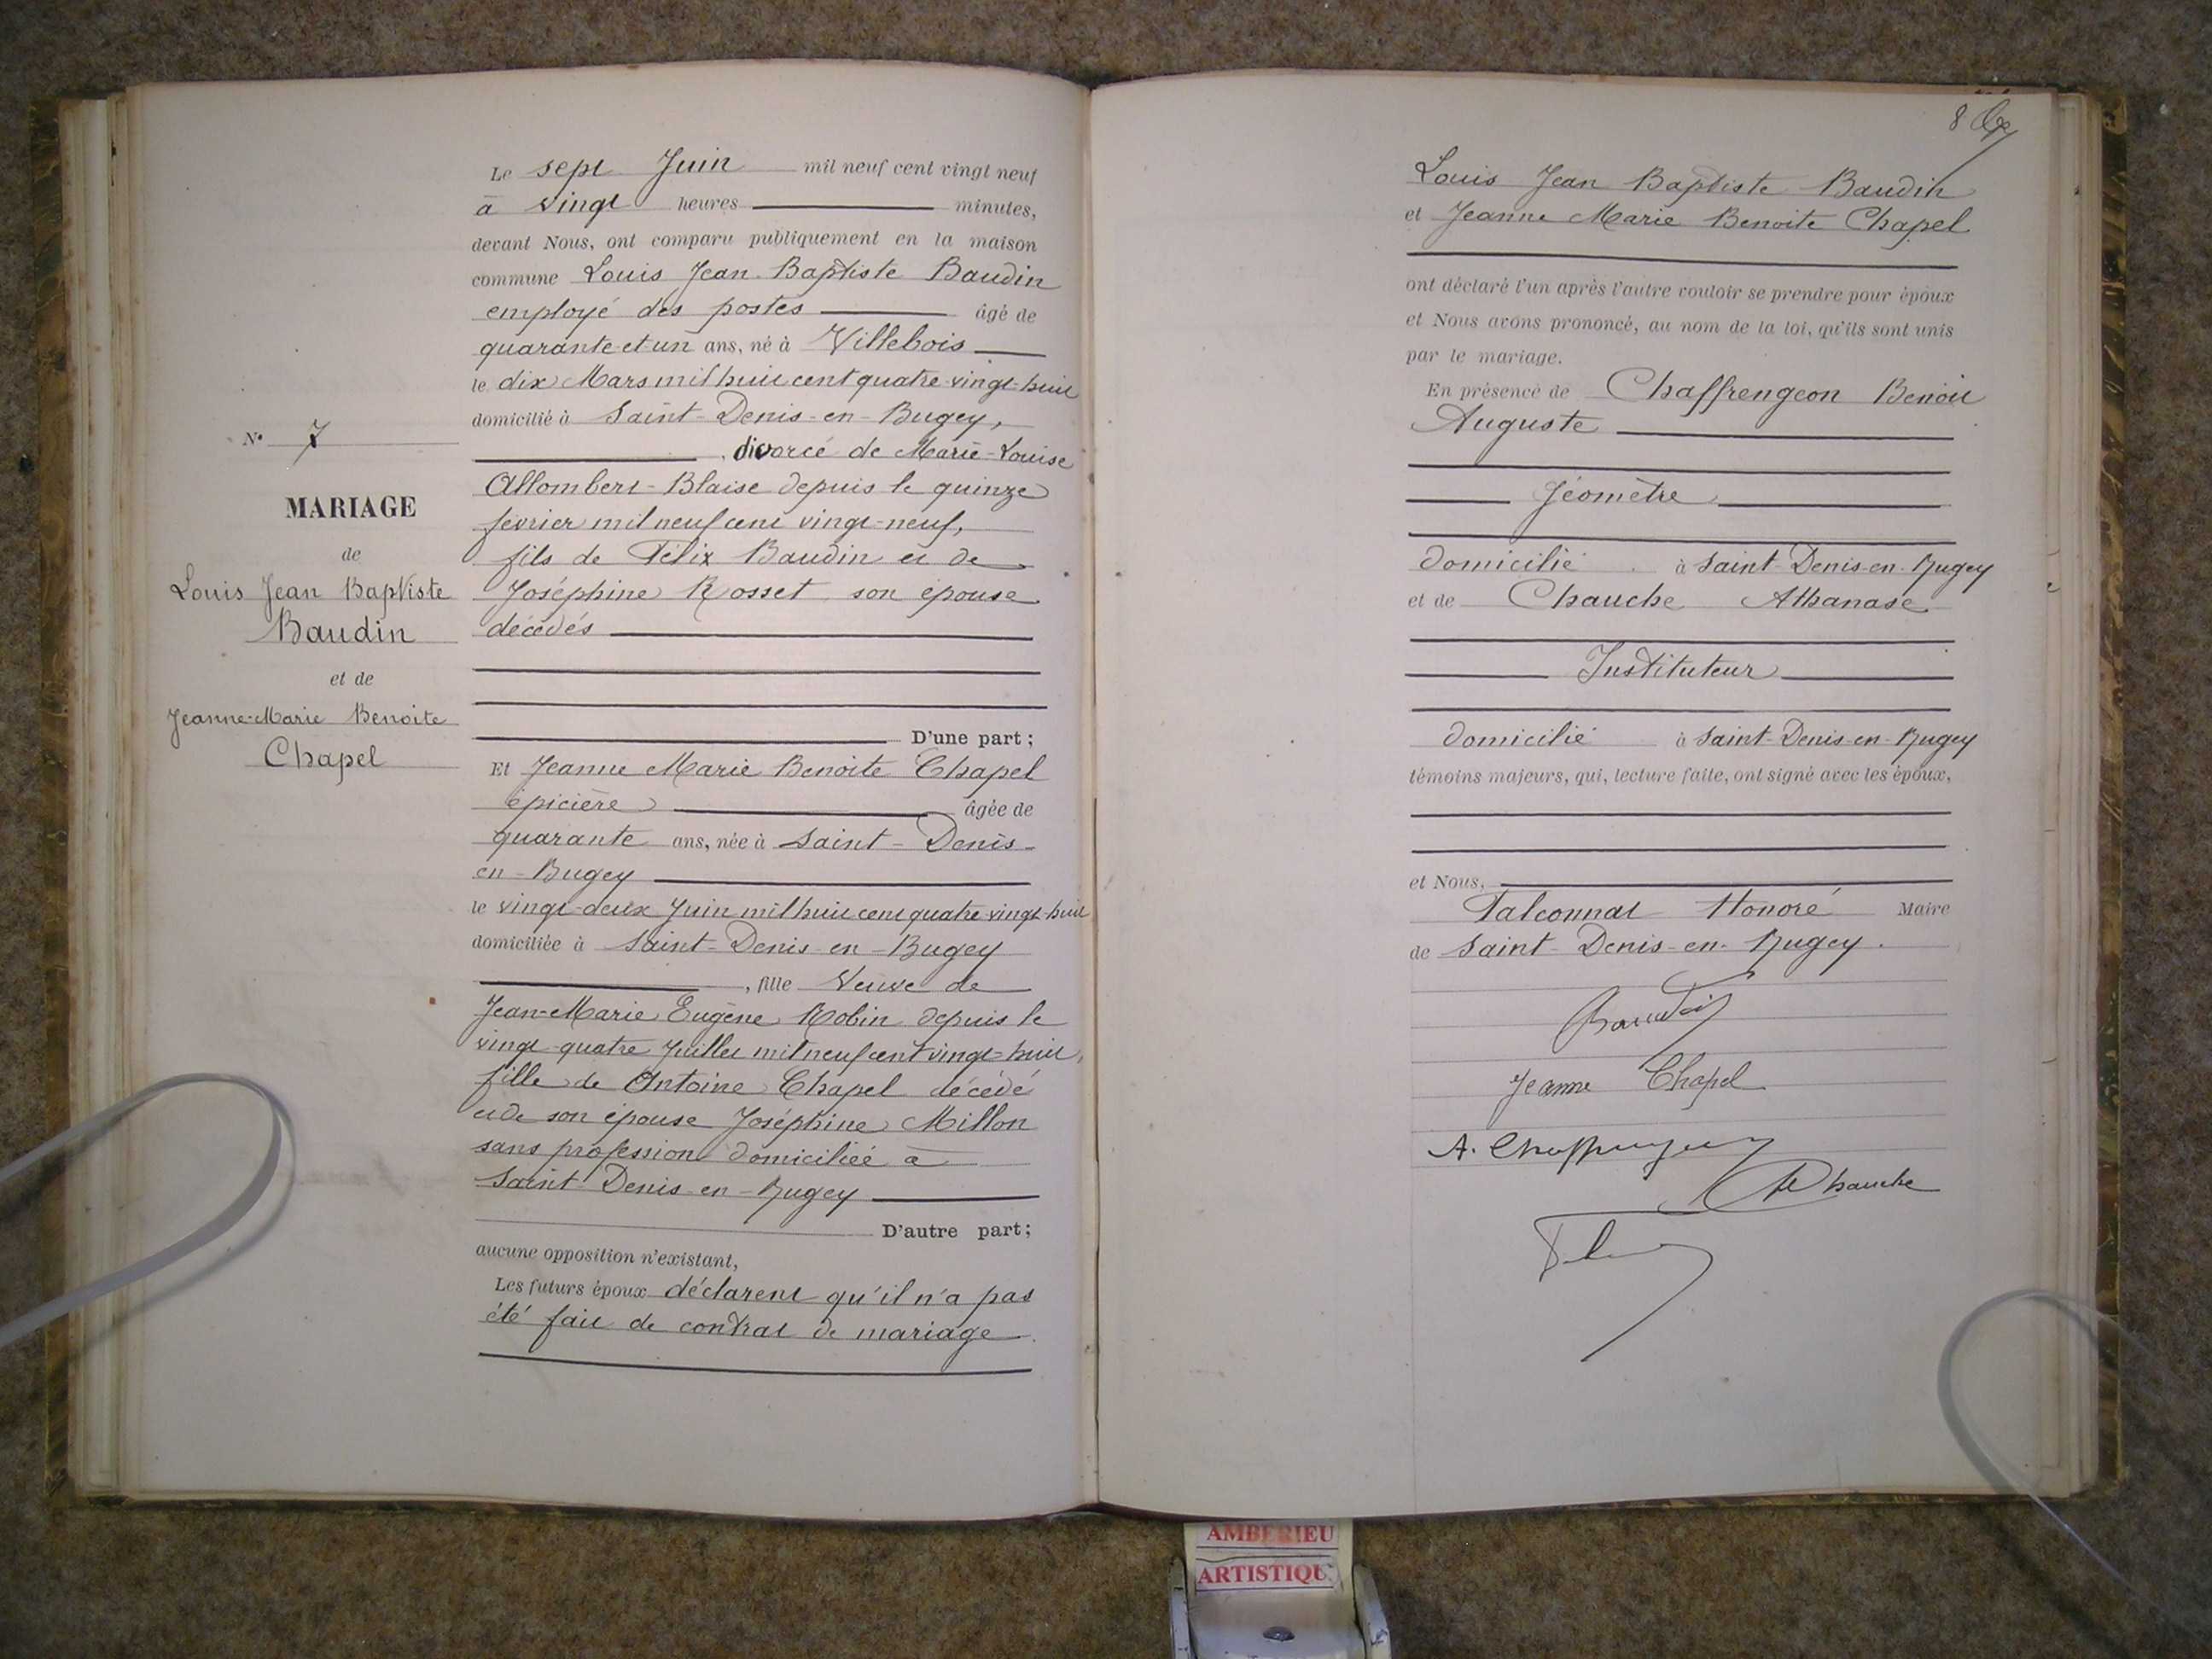 N° 7
MARIAGE
de
Louis Jean Baptiste
Baudin
et de
Jeanne-Marie Benoite
Chapel
Le sept Juin mil neuf cent vingt neuf
à vingt heures minutes,
devant Nous, ont comparu publiquement en la maison
commune Louis Jean Baptiste Baudin
employé des postes âgé de
quarante et un ans, né à Villebois
le dix Mars mil huit cent quatre-vingt-huit
domicilié à Saint-Denis-en-Bugey,
, divorcé de Marie-Louise
Allombert-Blaise depuis le quinze
février mil neuf cent vingt-neuf,
fils de Félix Baudin et de
Joséphine Rosset son épouse
décédés
D'une part;
Et Jeanne Marie Benoite Chapel
épicière âgée de
quarante ans, née à Saint-Denis-
en-Bugey
le vingt-deux Juin mil huit cent quatre vingt-huit
domiciliée à Saint-Denis-en-Bugey
, fille Veuve de
Jean-Marie Eugène Robin depuis le
vingt-quatre Juillet mil neuf cent vingt-huit,
fille de Antoine Chapel décédé
et de son épouse Joséphine Millon
sans profession domiciliée à
Saint-Denis-en-Bugey
D'autre part;
aucune opposition n'existant,
Les futurs époux déclarent qu'il n'a pas
été fait de contrat de mariage
8
Louis Jean Baptiste Baudin
et Jeanne Marie Benoite Chapel
ont déclaré l'un après l'autre vouloir se prendre pour époux
et Nous avons prononcé, au nom de la loi, qu'ils sont unis
par le mariage.
En présence de Chaffrengeon Benoit
Auguste
Géomètre
domicilié à Saint-Denis-en-Bugey
et de Chauche Athanase
Instituteur
domicilié à Saint-Denis-en-Bugey
témoins majeurs, qui, lecture faite, ont signé avec les époux,
et Nous,
Falconnat Honoré Maire
de Saint-Denis-en-Bugey.
Baudin
Jeanne Chapel
A. Chaffrengeon
Chauche
AMBERIEU
ARTISTIQU